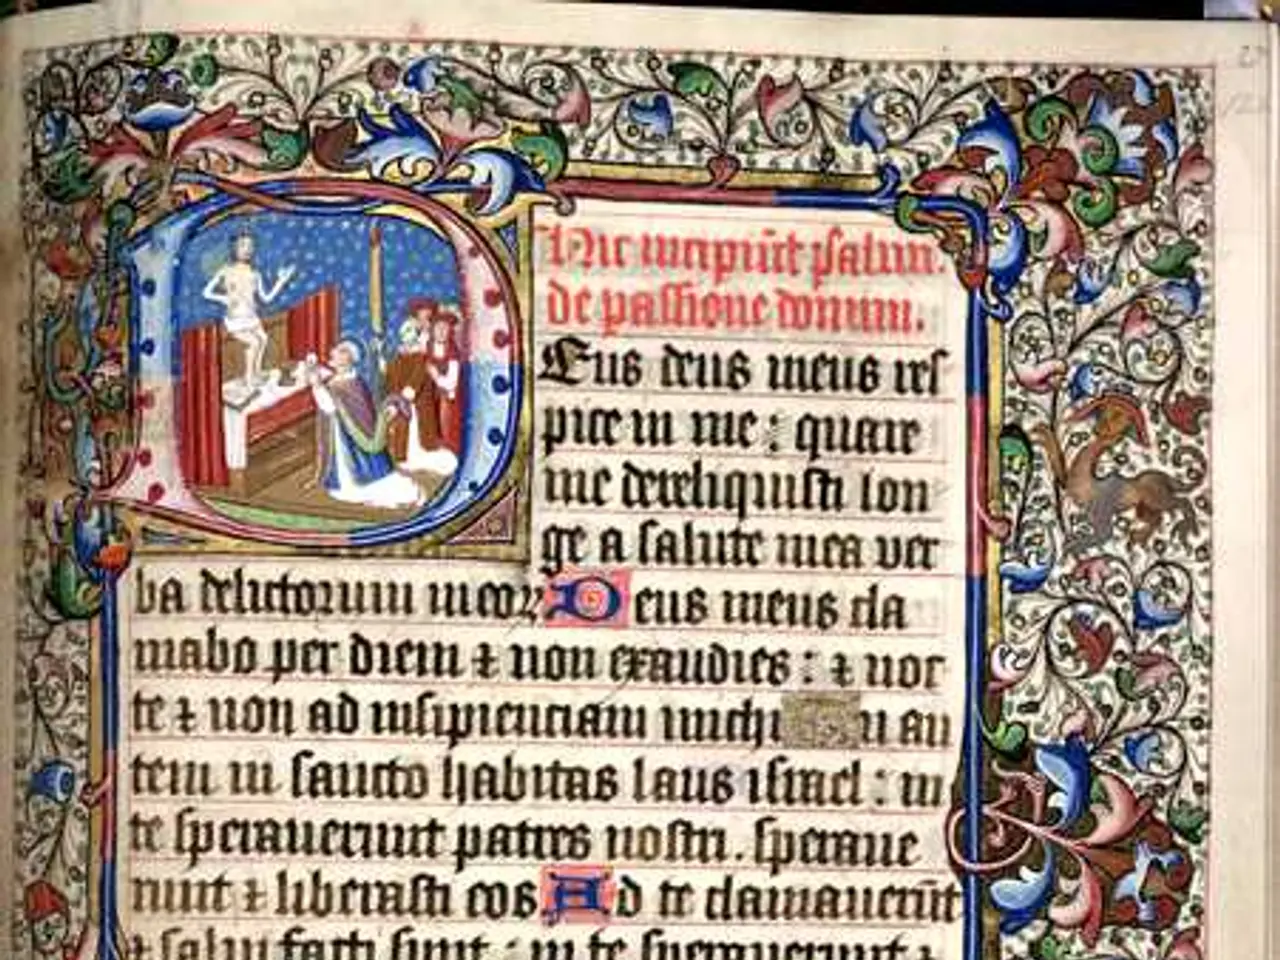 Hic incipiūt psalmi.
de passione domini.
Deus deus meus res
pice in me : quare
me dereliquisti lon
ge a salute mea ver
ba delictorum meorꝝ Deus meus cla
mabo per diem ⁊ non exaudies : ⁊ noc
te ⁊ non ad insipienciam michi u au
tem in sancto habitas laus israel : in
te sperauerunt patres nostri . speraue
runt ⁊ liberasti eos Ad te clamauerūt
⁊ salui facti sunt : in te sperauerunt ⁊